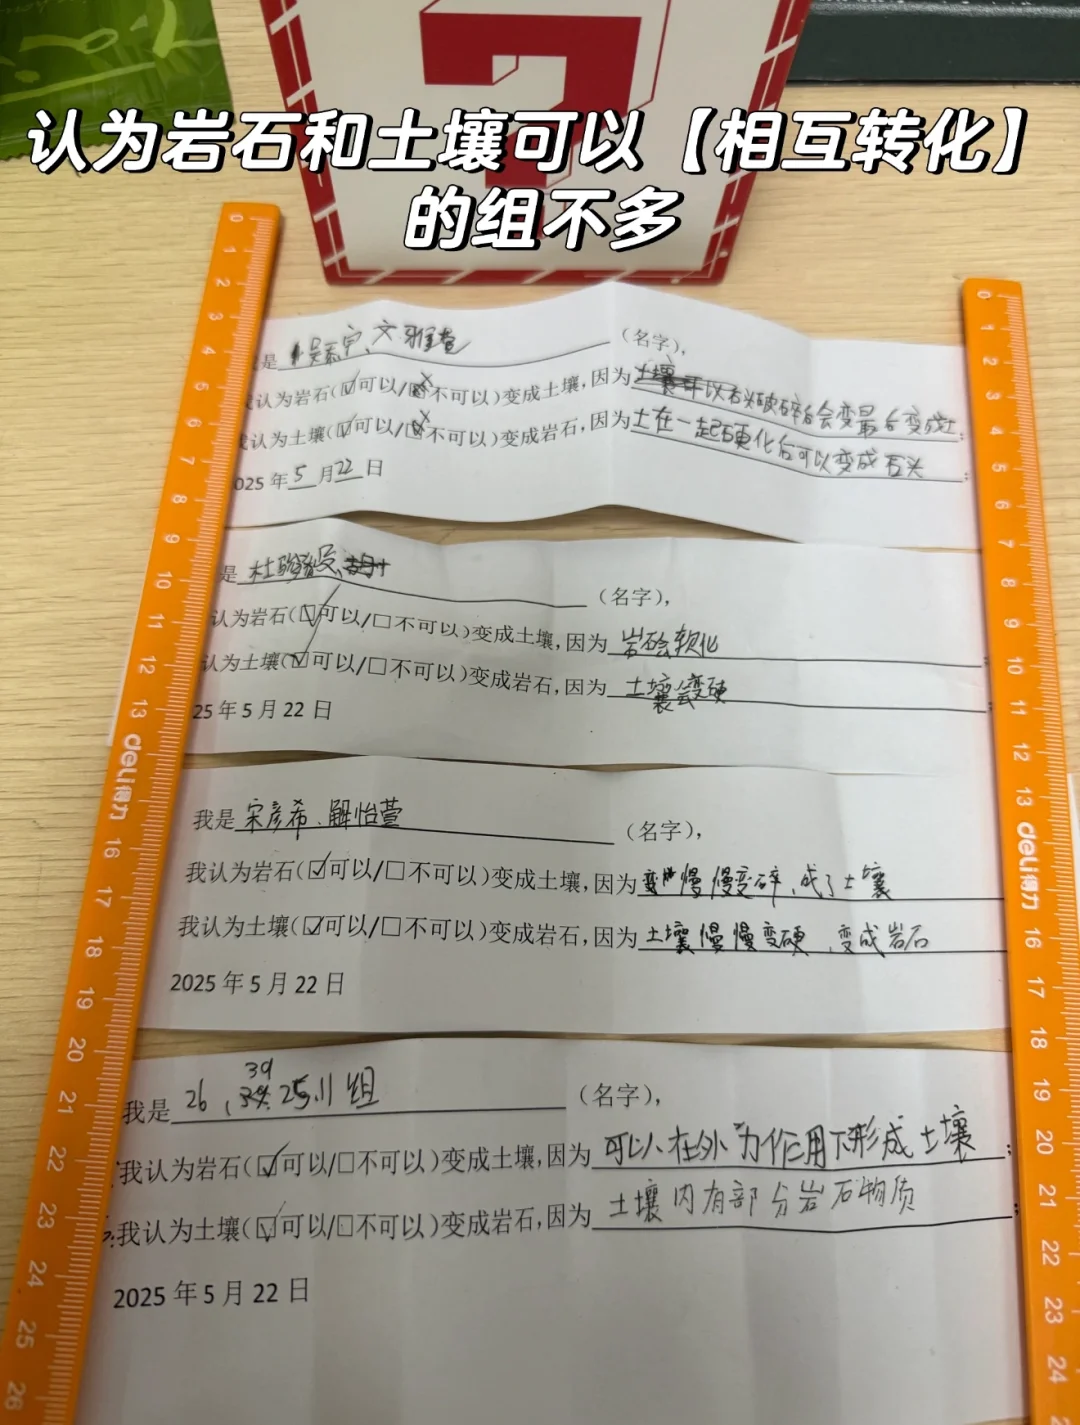 认为岩石和土壤可以【相互转化】
的组不多
是 文雅萱 （名字），
我认为岩石(☑可以/☒不可以)变成土壤,因为 以石头破碎后会变最后变成土;
我认为土壤(☑可以/☒不可以)变成岩石,因为土在一起硬化后可以变成石头;
025年5月22日
是 杜 （名字），
认为岩石(☑可以/□不可以)变成土壤,因为 岩石会软化;
认为土壤(☑可以/□不可以)变成岩石,因为 土壤会变硬;
25年5月22日
我是宋彦希、解怡萱 （名字），
我认为岩石(☑可以/□不可以)变成土壤,因为 慢慢变碎,成了土壤
我认为土壤(☑可以/□不可以)变成岩石,因为土壤慢慢变硬,变成岩石
2025年5月22日
我是 26、39、25、11组 （名字），
我认为岩石(☑可以/□不可以)变成土壤,因为 可以在外力作用下形成土壤;
我认为土壤(☑可以/□不可以)变成岩石,因为 土壤内有部分岩石物质;
2025年5月22日
deli得力
deli得力